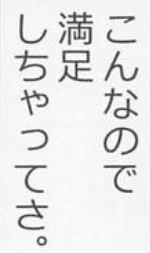 こんなので
満足
しちゃってさ。